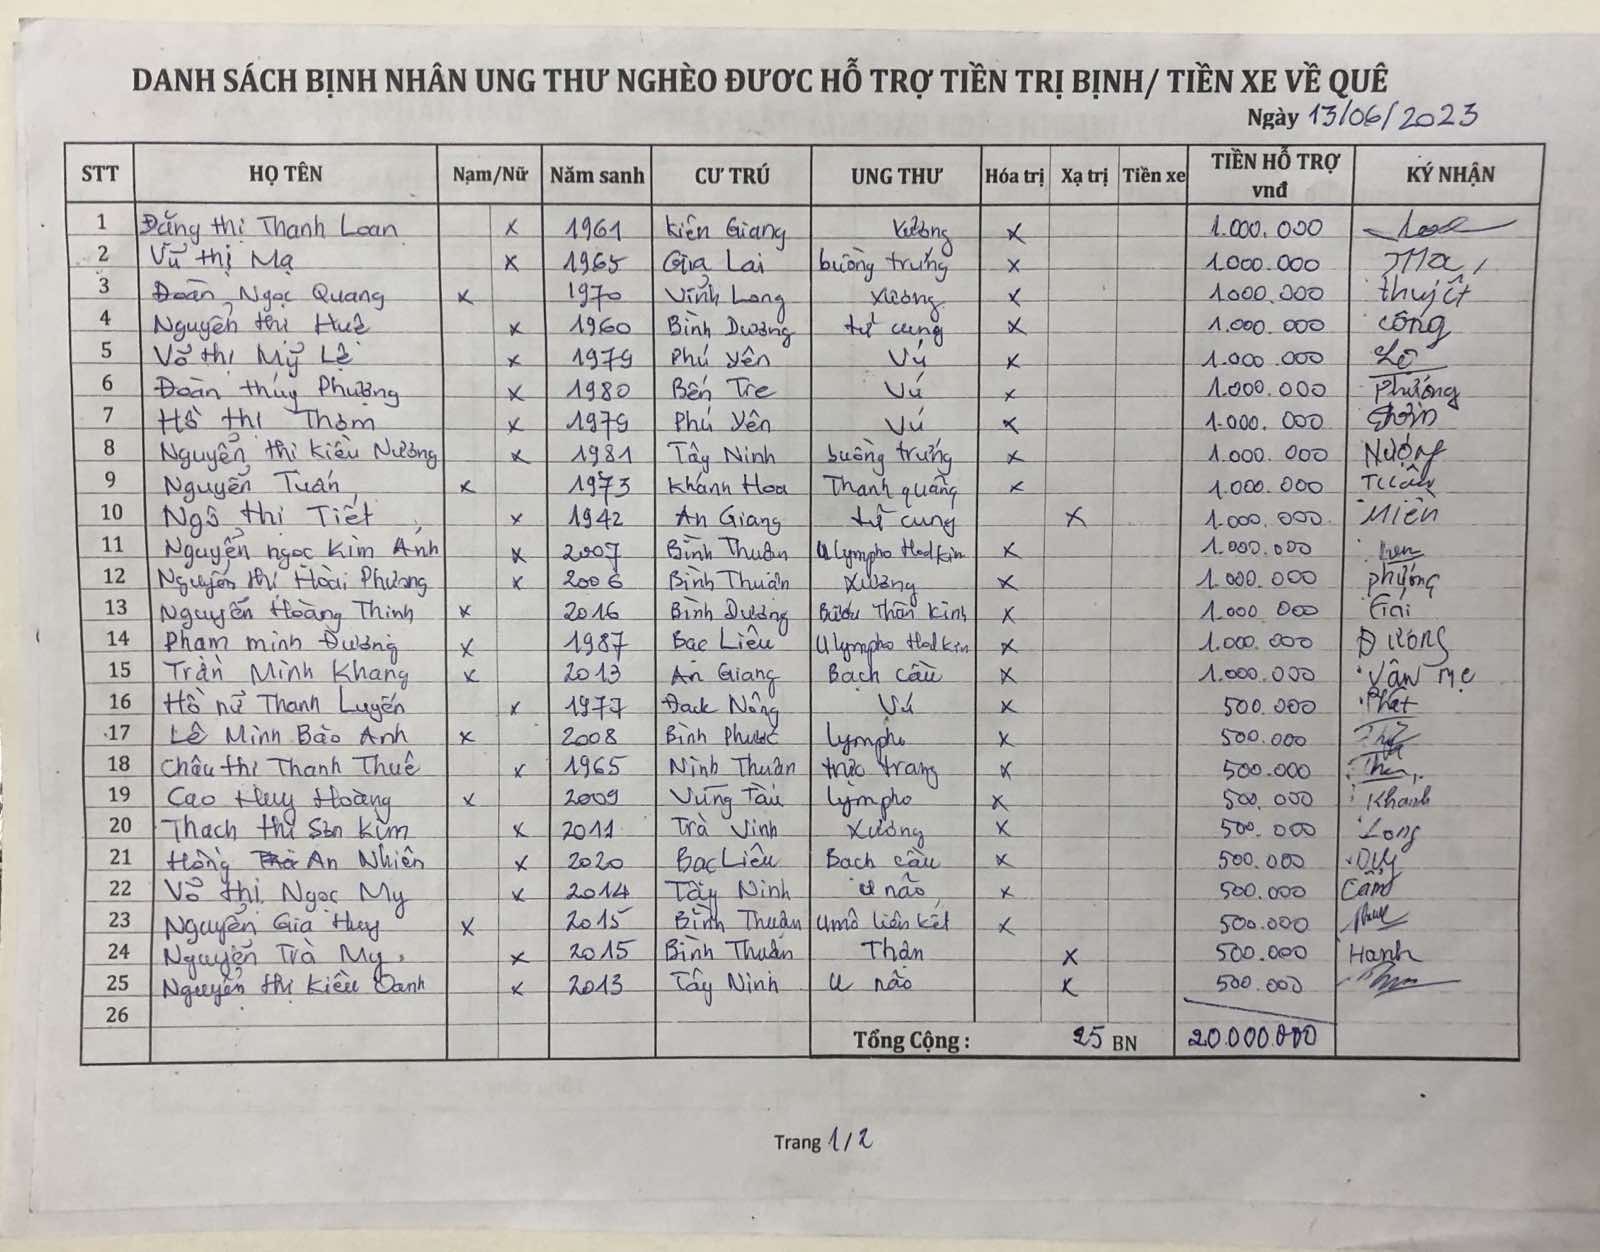 DANH SÁCH BỊNH NHÂN UNG THƯ NGHÈO ĐƯƠC HỖ TRỢ TIỀN TRỊ BỊNH/ TIỀN XE VỀ QUÊ
Ngày 13/06/2023
STT HỌ TÊN Nạm/Nữ Năm sanh CƯ TRÚ UNG THƯ Hóa trị Xạ trị Tiền xe TIỀN HỖ TRỢ vnđ KÝ NHẬN
1 Đặng thị Thanh Loan x 1961 Kiên Giang Xương x 1.000.000
2 Vũ thị Mạ x 1965 Gia Lai buồng trứng x 1.000.000 Ma
3 Đoàn Ngọc Quang x 1970 Vĩnh Long Xương x 1.000.000
4 Nguyễn thị Huê x 1960 Bình Dương tử cung x 1.000.000 công
5 Võ thị Mỹ Lệ x 1979 Phú Yên Vú x 1.000.000
6 Đoàn thúy Phượng x 1980 Bến Tre Vú x 1.000.000 Phượng
7 Hồ thị Thơm x 1979 Phú Yên Vú x 1.000.000 Thơm
8 Nguyễn thị Kiều Nương x 1981 Tây Ninh buồng trứng x 1.000.000 Nương
9 Nguyễn Tuấn x 1973 Khánh Hoa Thanh quảng x 1.000.000 Tuấn
10 Ngô thị Tiết x 1942 An Giang tử cung x 1.000.000 Miên
11 Nguyễn ngọc Kim Ánh x 2007 Bình Thuận U lympho Hodkin x 1.000.000
12 Nguyễn thị Hoài Phương x 2006 Bình Thuận Xương x 1.000.000 phương
13 Nguyễn Hoàng Thinh x 2016 Bình Dương Bướu Thần Kinh x 1.000.000
14 Phạm minh Đương x 1987 Bạc Liêu U lympho Hodkin x 1.000.000 Đương
15 Trần Minh Khang x 2013 An Giang Bạch cầu x 1.000.000 Vân mẹ
16 Hồ nữ Thanh Luyến x 1977 Đack Nông Vú x 500.000 Phát
17 Lê Minh Bảo Anh x 2008 Bình Phước lympho x 500.000
18 Châu thị Thanh Thuê x 1965 Ninh Thuận trực trang x 500.000
19 Cao Huy Hoàng x 2009 Vũng Tàu lympho x 500.000 Khanh
20 Thạch thị Sơn Kim x 2011 Trà Vinh Xương x 500.000 Long
21 Hồng An Nhiên x 2020 Bạc Liêu Bạch cầu x 500.000 Duy
22 Võ thị Ngọc My x 2014 Tây Ninh U não x 500.000 Cẩm
23 Nguyễn Gia Huy x 2015 Bình Thuận U mô liên kết x 500.000
24 Nguyễn Trà My x 2015 Bình Thuận Thận x 500.000 Hạnh
25 Nguyễn thị Kiều Oanh x 2013 Tây Ninh U não x 500.000
26
Tổng Cộng : 25 BN 20.000.000
Trang 1/2